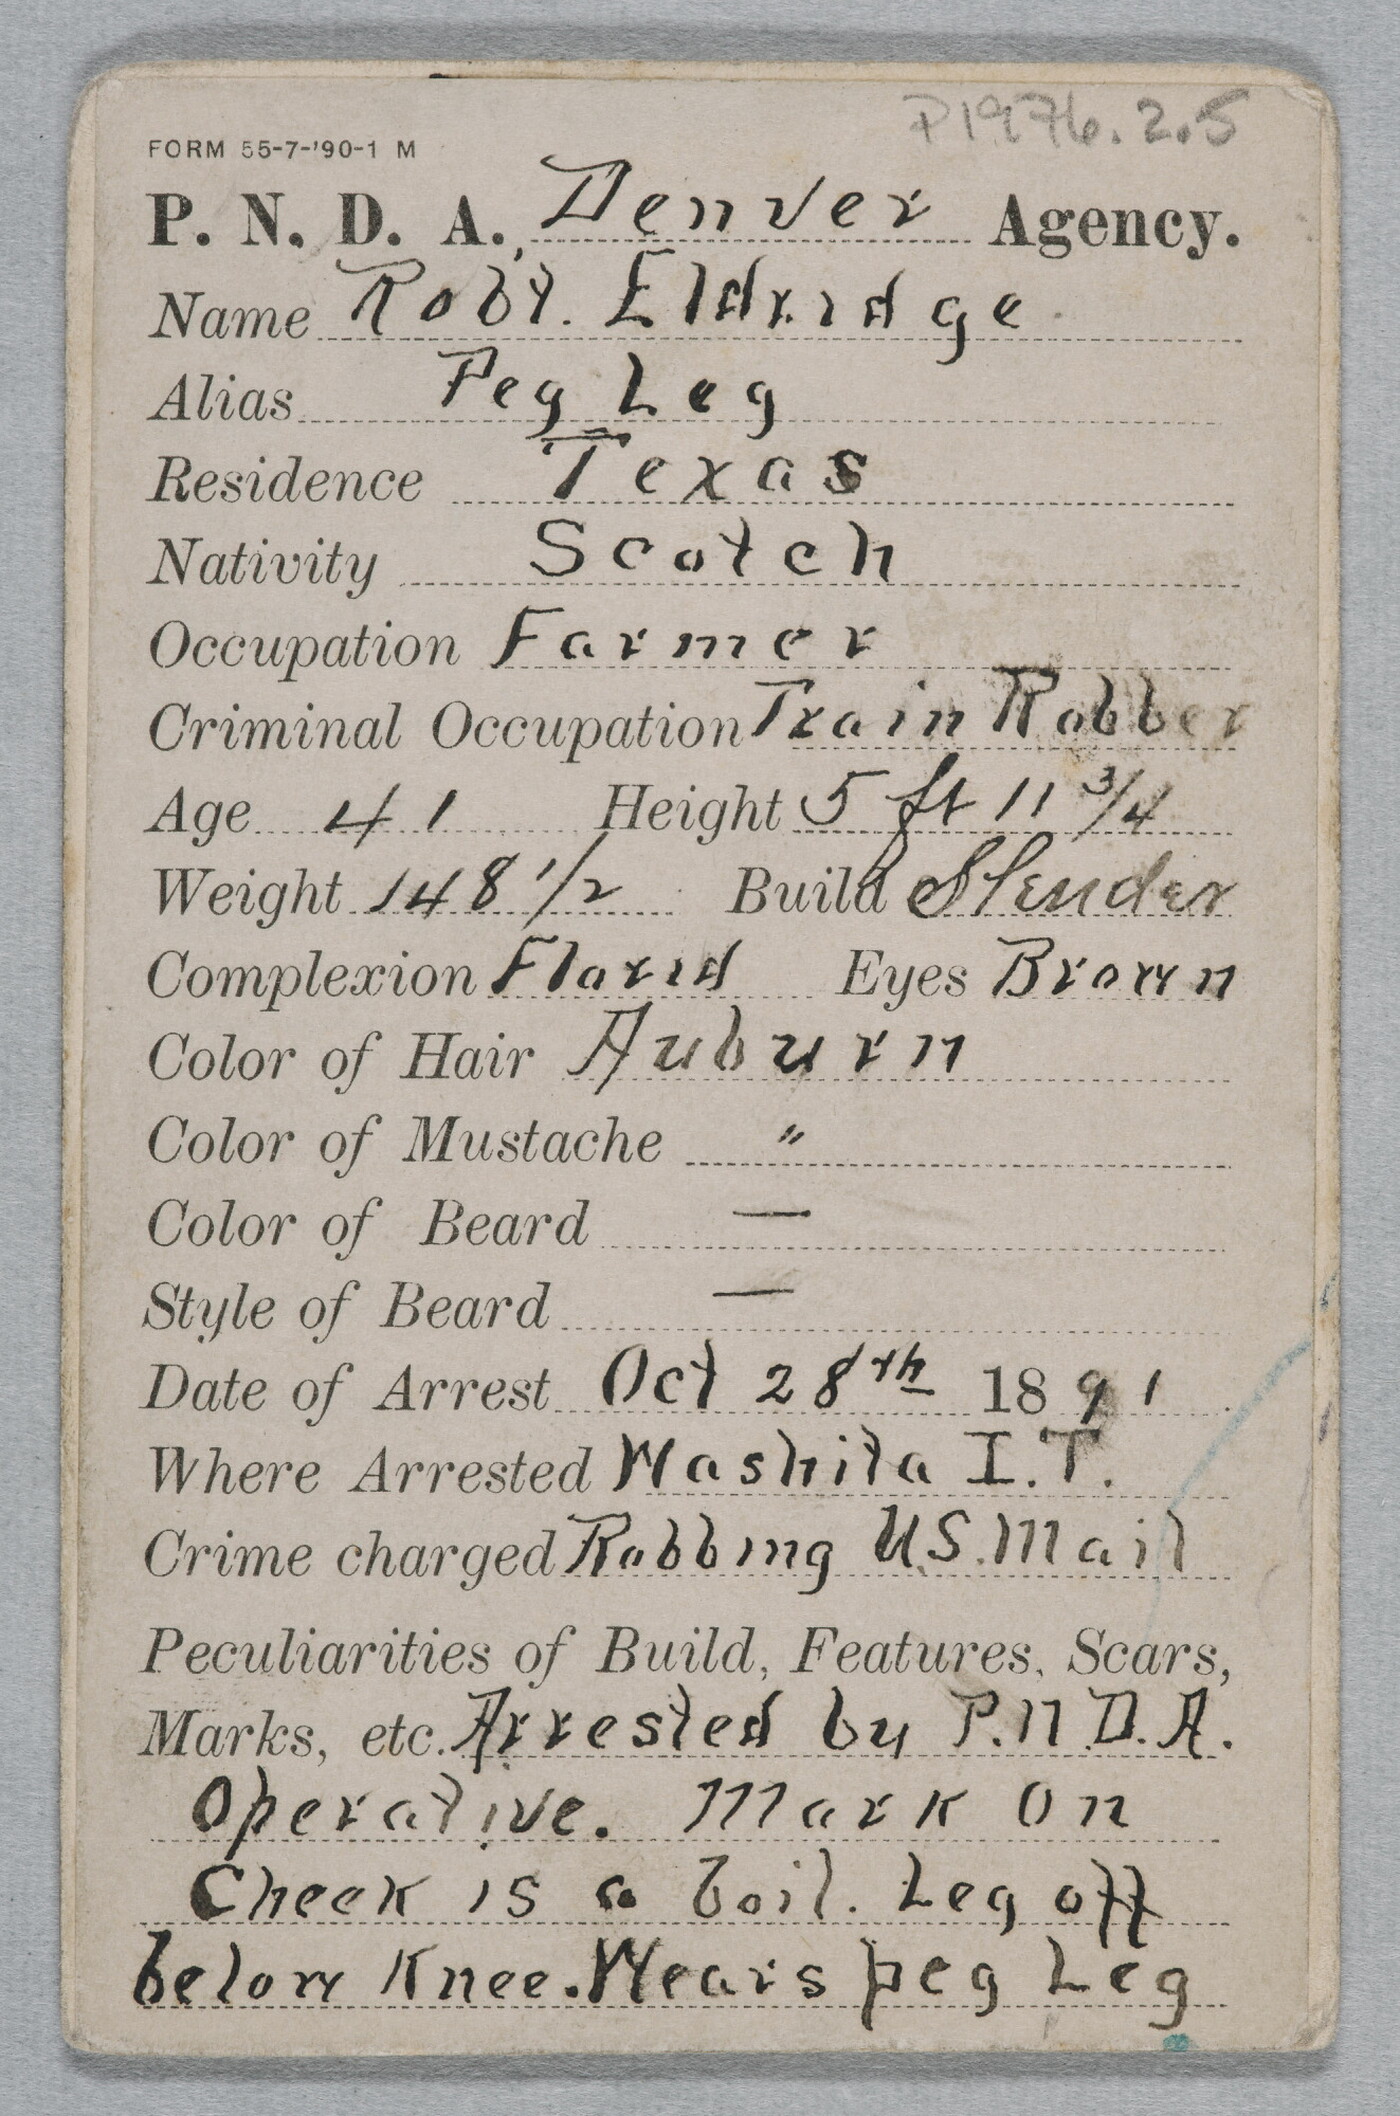 P1976.2.5
FORM 55-7-'90-1 M
P. N. D. A., Denver Agency.
Name Robt. Eldridge
Alias Peg Leg
Residence Texas
Nativity Scotch
Occupation Farmer
Criminal Occupation Train Robber
Age 41 Height 5 ft 11 3/4
Weight 148 1/2 Build Slender
Complexion Florid Eyes Brown
Color of Hair Auburn
Color of Mustache "
Color of Beard —
Style of Beard —
Date of Arrest Oct 28th 1891
Where Arrested Washita I.T.
Crime charged Robbing U.S. Mail
Peculiarities of Build, Features, Scars,
Marks, etc. Arrested by P.N.D.A.
Operative. Mark on
Cheek is a boil. Leg off
below Knee. Wears peg Leg